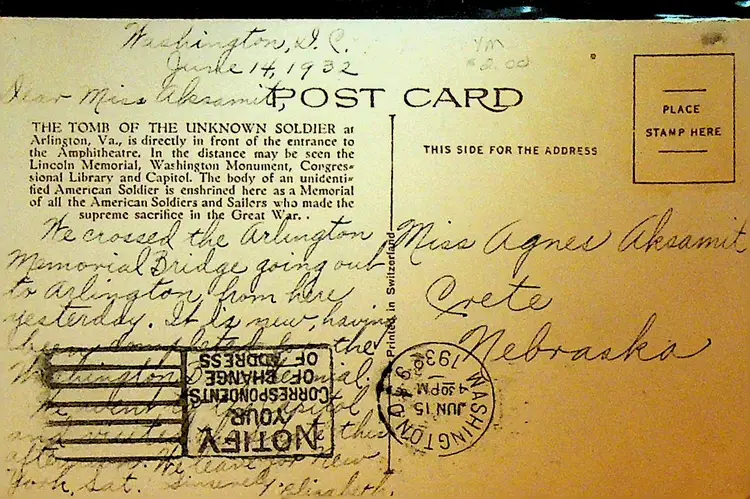 Washington, D.C.
June 14, 1932
Dear Miss Aksamit,
POST CARD
YM
$2.00
THE TOMB OF THE UNKNOWN SOLDIER at
Arlington, Va., is directly in front of the entrance to
the Amphitheatre. In the distance may be seen the
Lincoln Memorial, Washington Monument, Congres-
sional Library and Capitol. The body of an unidenti-
fied American Soldier is enshrined here as a Memorial
of all the American Soldiers and Sailors who made the
supreme sacrifice in the Great War. .
We crossed the Arlington
Memorial Bridge going out
to Arlington from here
yesterday. It is new, having
been completed for the
Washington Bicentennial.
We went the Capitol
and this
afternoon. We leave for New
York, Sat. Sincerely, Elizabeth.
Printed in Switzerland
THIS SIDE FOR THE ADDRESS
PLACE
STAMP HERE
Miss Agnes Aksamit
Crete
Nebraska
WASHINGTON D.C.
JUN 15
4 30 PM
193
NOTIFY
YOUR
CORRESPONDENTS
OF CHANGE
OF ADDRESS